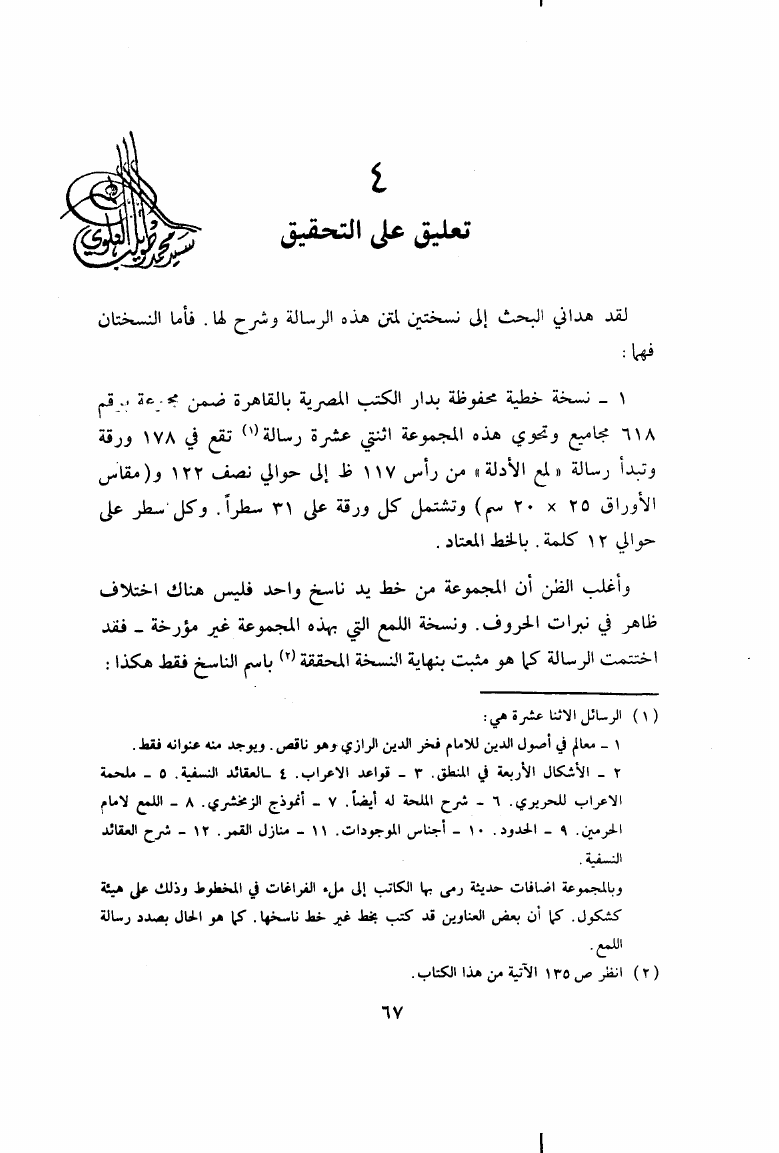 ٤
سيد محمد العلوي
تعليق على التحقيق
لقد هداني البحث إلى نسختين لمتن هذه الرسالة وشرح لها. فأما النسختان
فهما:
١ - نسخة خطية محفوظة بدار الكتب المصرية بالقاهرة ضمن مجموعة برقم
٦١٨ مجاميع وتحوي هذه المجموعة اثنتي عشرة رسالة(١) تقع في ١٧٨ ورقة
وتبدأ رسالة «لمع الأدلة» من رأس ١١٧ ظ إلى حوالي نصف ١٢٢ و(مقاس
الأوراق ٢٥ × ٢٠ سم) وتشتمل كل ورقة على ٣١ سطراً. وكل سطر على
حوالي ١٢ كلمة. بالخط المعتاد.
وأغلب الظن أن المجموعة من خط يد ناسخ واحد فليس هناك اختلاف
ظاهر في نبرات الحروف. ونسخة اللمع التي بهذه المجموعة غير مؤرخة - فقد
اختتمت الرسالة كما هو مثبت بنهاية النسخة المحققة(٢) باسم الناسخ فقط هكذا:
(١) الرسائل الاثنا عشرة هي:
١ - معالم في أصول الدين للامام فخر الدين الرازي وهو ناقص. ويوجد منه عنوانه فقط.
٢ - الأشكال الأربعة في المنطق. ٣ - قواعد الاعراب. ٤ - العقائد النسفية. ٥ - ملحمة
الاعراب للحريري. ٦ - شرح الملحة له أيضاً. ٧ - أنموذج الزمخشري. ٨ - اللمع لامام
الحرمين. ٩ - الحدود. ١٠ - أجناس الموجودات. ١١ - منازل القمر. ١٢ - شرح العقائد
النسفية.
وبالمجموعة اضافات حديثة رمى بها الكاتب إلى ملء الفراغات في المخطوط وذلك على هيئة
كشكول. كما أن بعض العناوين قد كتب بخط غير خط ناسخها. كما هو الحال بصدد رسالة
اللمع.
(٢) انظر ص ١٣٥ الآتية من هذا الكتاب.
٦٧